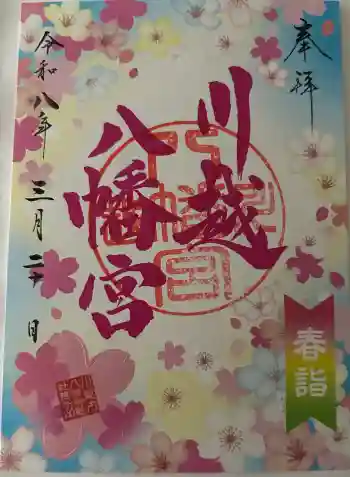 奉拝
川越
八幡宮
令和八年
三月二十日
春詣